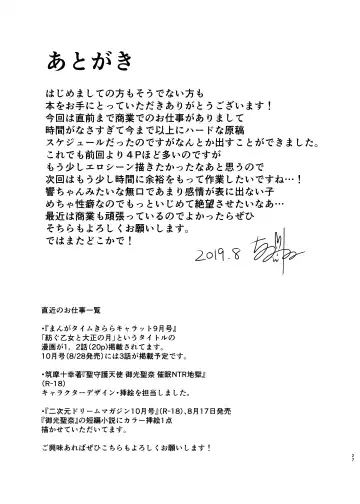 あとがき
はじめましての方もそうでない方も
本をお手にとっていただきありがとうございます！
今回は直前まで商業でのお仕事がありまして
時間がなさすぎて今まで以上にハードな原稿
スケジュールだったのですがなんとか出すことができました。
これでも前回より４Pほど多いのですが
もう少しエロシーン描きたかったなあと思うので
次回はもう少し時間に余裕をもって作業したいですね…！
響ちゃんみたいな無口であまり感情が表に出ない子
めちゃ性癖なのでもっといじめて絶望させたいなあ…
最近は商業も頑張っているのでよかったらぜひ
そちらもよろしくお願いします。
ではまたどこかで！
2019.8
直近のお仕事一覧
・『まんがタイムきららキャラット9月号』
「紡ぐ乙女と大正の月」というタイトルの
漫画が1、2話(20p)掲載されてます。
10月号(8/28発売)には3話が掲載予定です。
・筑摩十幸著『聖守護天使 御光聖奈 催眠NTR地獄』
(R-18)
キャラクターデザイン・挿絵を担当しました。
・『二次元ドリームマガジン10月号』(R-18)、8月17日発売
『御光聖奈』の短編小説にカラー挿絵1点
描かせていただいてます。
ご興味あればぜひこちらもよろしくお願いします！